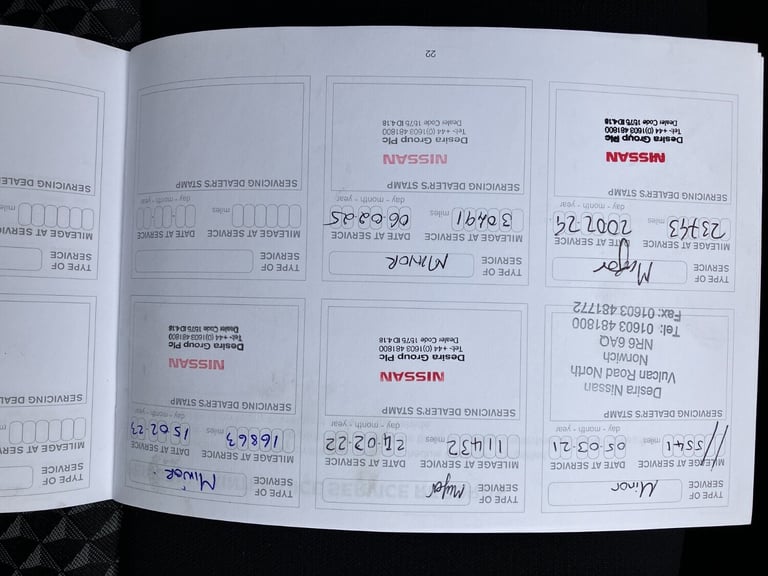 TYPE OF SERVICE Minor
MILEAGE AT SERVICE DATE AT SERVICE
5541 miles 05-03-21
day - month - year
SERVICING DEALER'S STAMP
Desira Nissan
Vulcan Road North
Norwich
NR6 6AQ
Tel: 01603 481800
Fax: 01603 481772
TYPE OF SERVICE Major
MILEAGE AT SERVICE DATE AT SERVICE
11432 miles 24.02.22
day - month - year
SERVICING DEALER'S STAMP
NISSAN
Desira Group Plc
Tel:- +44 (0)1603 481800
Dealer Code 1575 ID4.18
TYPE OF SERVICE MINOR
MILEAGE AT SERVICE DATE AT SERVICE
16863 miles 15.02.23
day - month - year
SERVICING DEALER'S STAMP
NISSAN
Desira Group Plc
Tel:- +44 (0)1603 481800
Dealer Code 1575 ID4.18
TYPE OF SERVICE Major
MILEAGE AT SERVICE DATE AT SERVICE
23743 miles 200224
day - month - year
SERVICING DEALER'S STAMP
NISSAN
Desira Group Plc
Tel:- +44 (0)1603 481800
Dealer Code 1575 ID4.18
TYPE OF SERVICE MINOR
MILEAGE AT SERVICE DATE AT SERVICE
30491 miles 06.02.25
day - month - year
SERVICING DEALER'S STAMP
NISSAN
Desira Group Plc
Tel:- +44 (0)1603 481800
Dealer Code 1575 ID4.18
TYPE OF SERVICE
MILEAGE AT SERVICE DATE AT SERVICE
miles
day - month - year
SERVICING DEALER'S STAMP
22
TYPE OF SERVICE
MILEAGE AT SERVICE
miles
SERVICING DEALER
TYPE OF SERVICE
MILEAGE AT SERVICE
miles
SERVICING DEALER